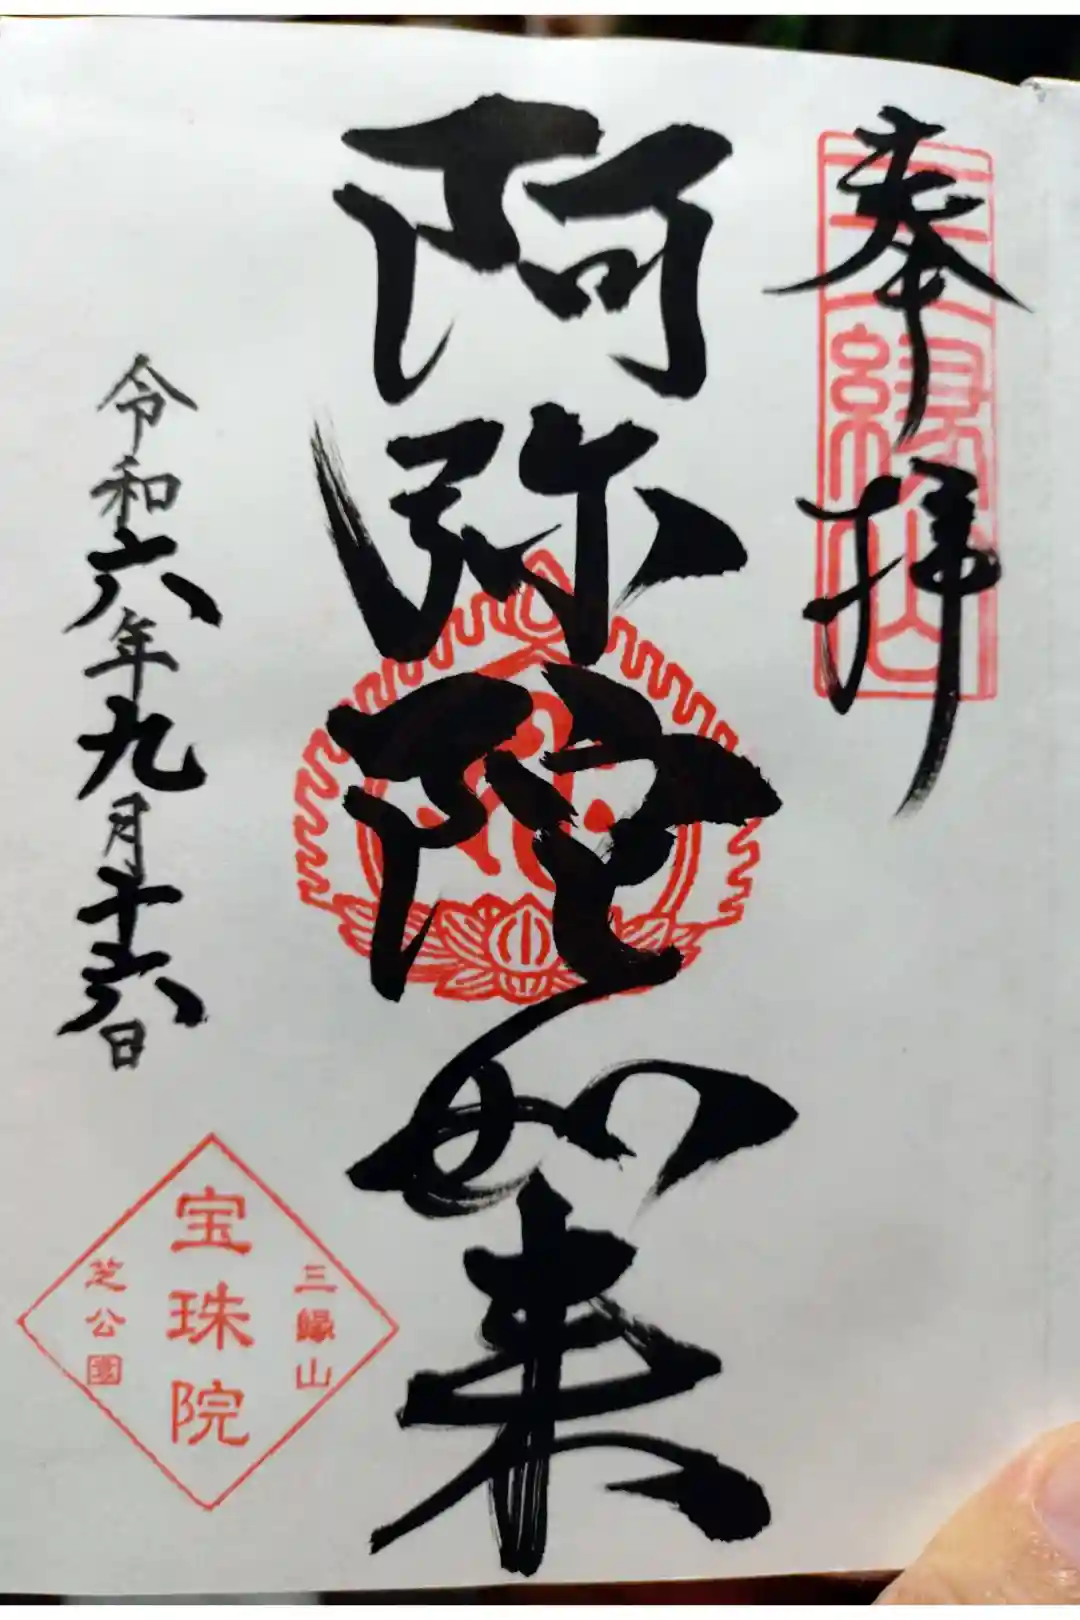 奉拝
三縁山
阿弥陀如来
令和六年九月十六日
三縁山
宝珠院
芝公園